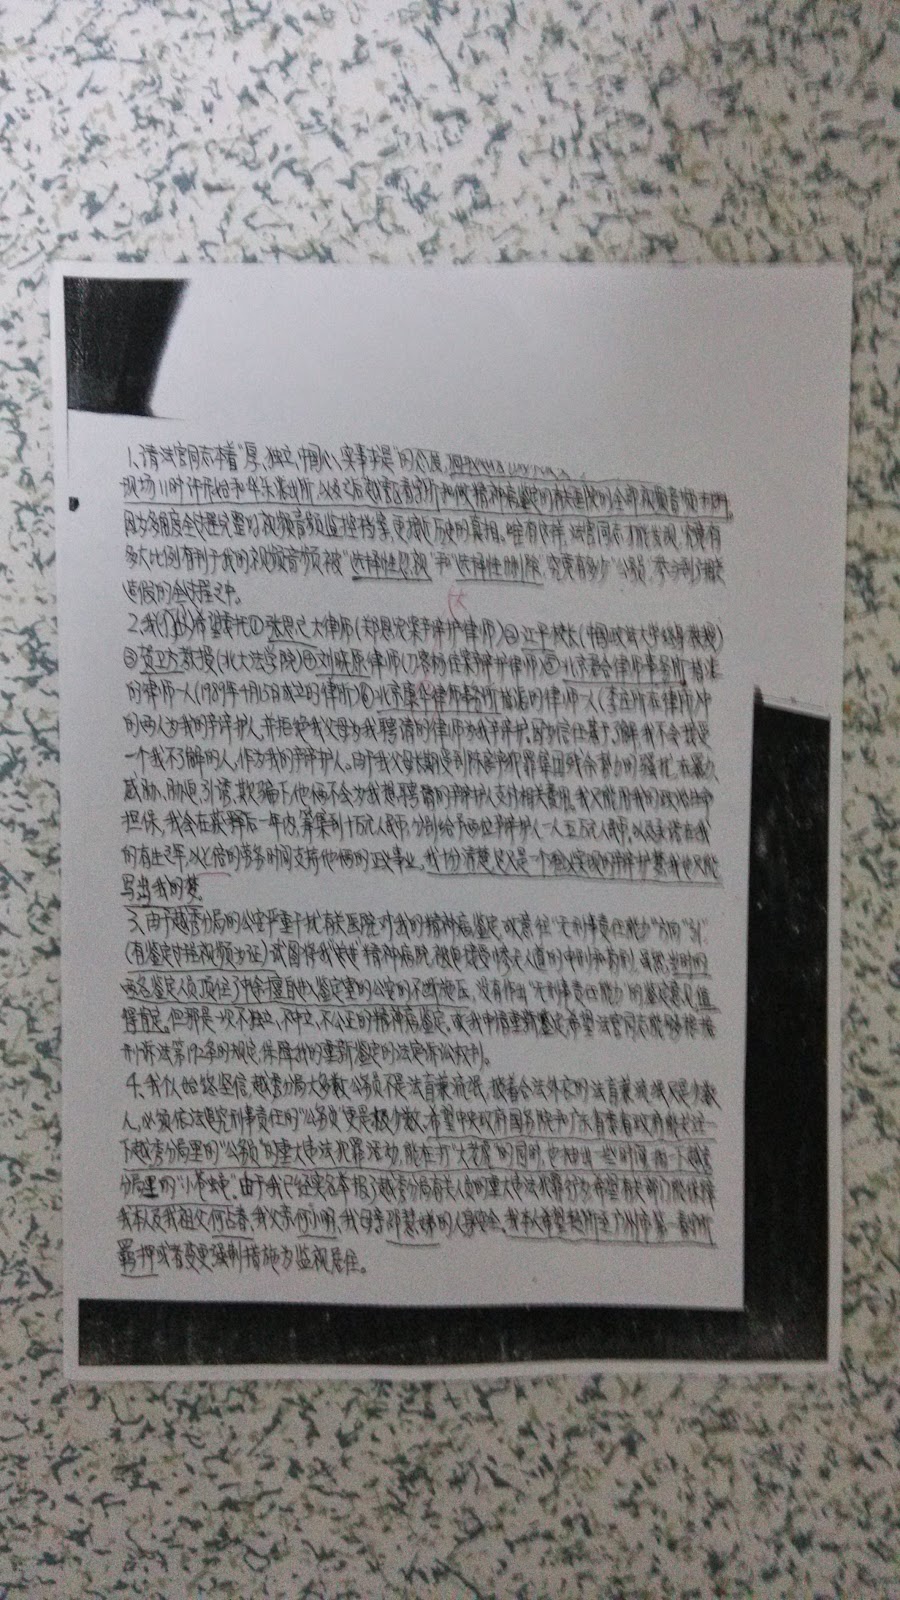 1、请法官同志本着"厚、独立、中国心、实事求是"的态度,
现场11时许开始和华乐派出所,以及之后越秀看守所和做精神病鉴定的有关医院的全部视频音频
因为多角度全过程完整的视频音频监控档案,更接近历史的真相。唯有这样,法官同志才能发现,究竟有
多大比例有利于我的视频音频被"选择性忽视"和"选择性删除",究竟有多少"公务员"参与到了
造假的全过程之中。
2、我个人希望委托①张思之大律师(郑恩宠案辩护律师)②江平校长(中国政法大学终身教授)
③贺卫方教授(北大法学院)④刘晓原律师(杨佳案辩护律师)⑤北京律师事务所指派
的律师一人(1989年4月15日成立的律所)⑥北京康华律师事务所指派的律师一人(李庄所在律所)中
的两人为我的辩护人,并拒绝我父母为我聘请的律师为我辩护。因为信任基于了解,我不会接受
一个我不了解的人,作为我的辩护人。由于我父母长期受到犯罪集团残余势力的骚扰,在暴力、
威胁、引诱、欺骗下,他俩不会为我想聘请的辩护人支付相关费用。我只能用我的政治生命
担保,我会在获释后一年内,筹集到十万元人民币,分别给予两位辩护人一人五万元人民币。以及承诺在我
的有生之年,以倍的劳务时间支持他俩的正义事业。我十分清楚这又是一个难以实现的辩护梦,我也只能
写出我的梦。
3、由于越秀分局的公安严重干扰有关医院对我的精神病鉴定,故意往"无刑事责任能力"方向"引"。
(有鉴定过程视频为证)试图将我"送进"精神病院,被迫接受惨无人道的电刑和药刑。虽然,当时的
两名鉴定人员顶住了中途擅自进入鉴定室的公安的不断施压,没有作出"无刑事责任能力"的鉴定意见,值
得肯定。但那是一次不独立、不中立、不公正的精神病鉴定。故我申请重新鉴定,希望法官同志能够根据
刑诉法第192条的规定,保障我的重新鉴定的法定诉讼权利。
4、我个人始终坚信,越秀分局大多数公务员不是法盲兼流氓,披着合法外衣的法盲兼流氓只是少数
人,必须依法追究刑事责任的"公务员"更是极少数。希望中央政府国务院和广东省委省政府能关注一
下越秀分局里的"公务员"的重大违法犯罪活动,能在打"大老虎"的同时,也抽出一些时间,拍一下越秀
分局里的"小苍蝇"。由于我已经实名举报了越秀分局有关人员的重大违法犯罪行为,希望有关部门能保障
我本人及我祖父何占春、我父亲何小明、我母亲邵慧娣的人身安全。我本人希望转所至广州市第一看守所
羁押或者变更强制措施为监视居住。